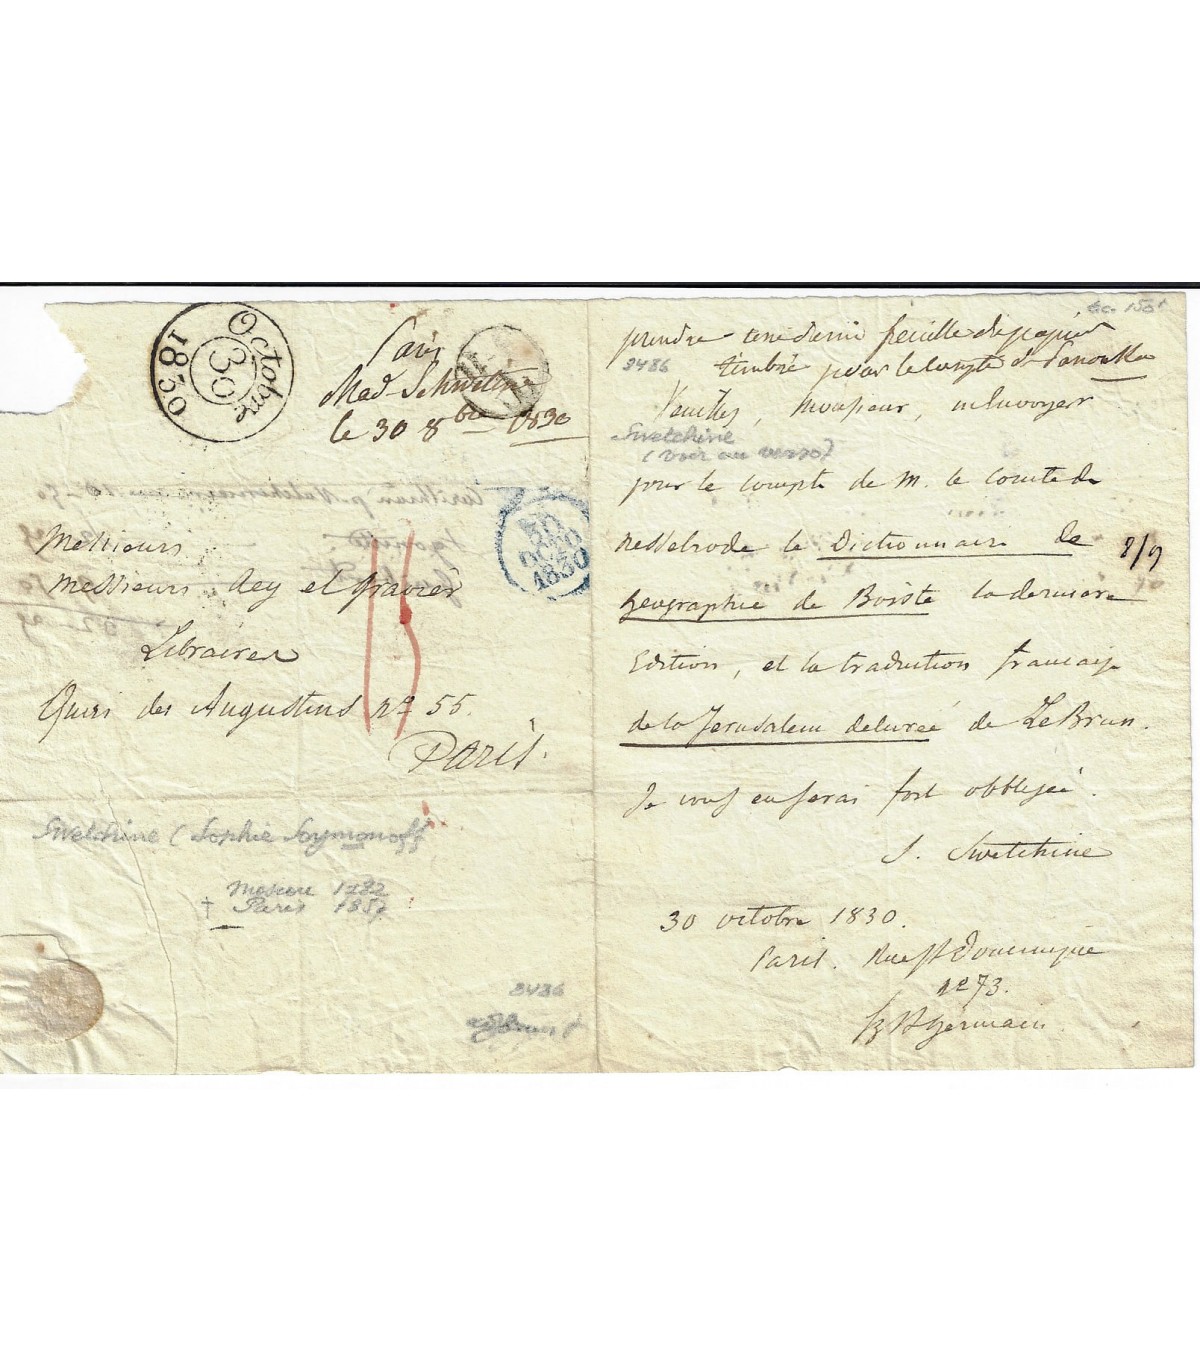 Octobre
30
1830
Paris
Mad. Schwetzin
le 30 8bre 1830
30
OCT
1830
Messieurs
Messieurs Rey et Gravier
Libraires
Quai des Augustins nº 55.
Paris.
Swetchine (Sophie Soymonoff
Moscou 1782
† Paris 1857
3486
prendre une demie feuille de papier
timbré pour le compte de
3486
Veuillez, Monsieur, m'envoyer
Swetchine
(voir au verso)
pour le compte de M. le Comte de
Nesselrode le Dictionnaire de
8/9
geographie de Boiste la derniere
Edition, et la traduction francaise
de la Jerusalem delivreé de LeBrun.
Je vous en serai fort obbligeé.
S. Swetchine
30 octobre 1830.
Paris. Rue St Dominique
nº 73.
fg St Germain.